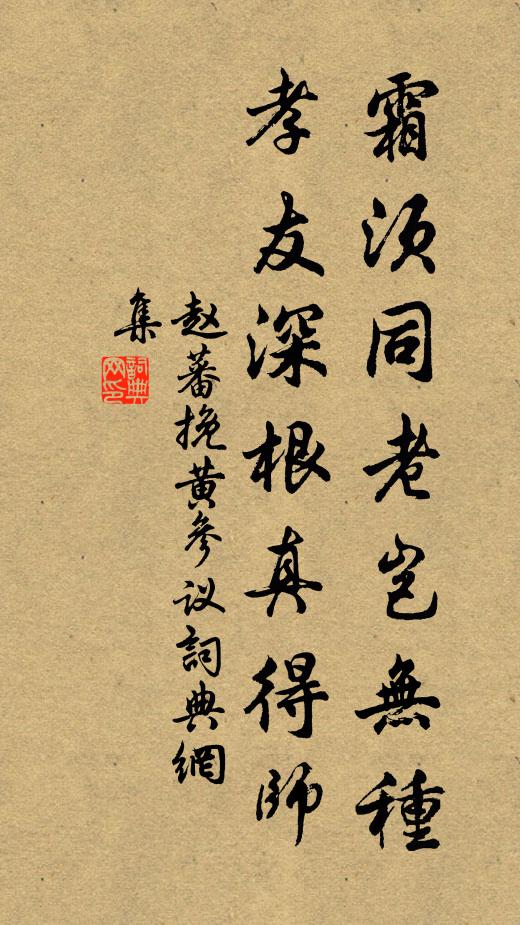 霜須同老岂無種
孝友深根真得師
赵蕃挽黄參议詞典網
集
詞典
网印